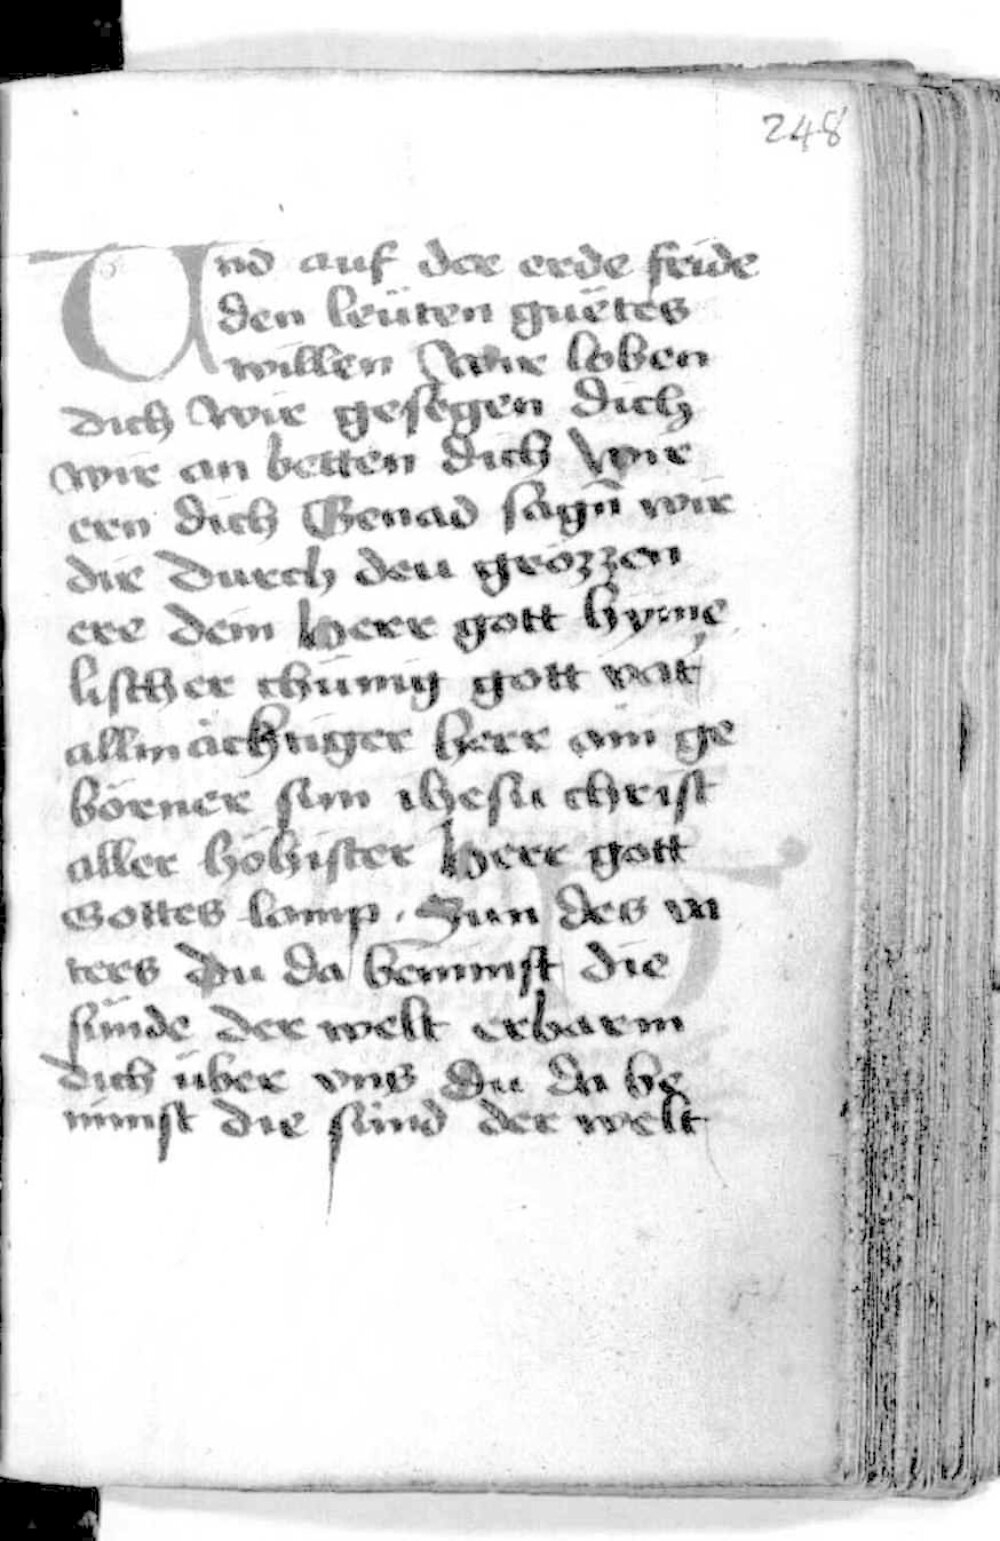 248
Und auf der erde freide
den leüten guëtes
willen Wir loben
dich wir gesegen dich
wir an betten dich Wir
ern dich Genad sagn̄ wir
dir durch den grozzen
ere dein Herr gott hyme
lischer chünig gott vat
allmächtiger herr ain ge
börner sun ihesu christ
aller höhister Herr gott
Gottes lamp. Sun des va
ters Du da benimst die
sünde der welt erbarm
dich über vns Du da be
nimst die sünd der welt